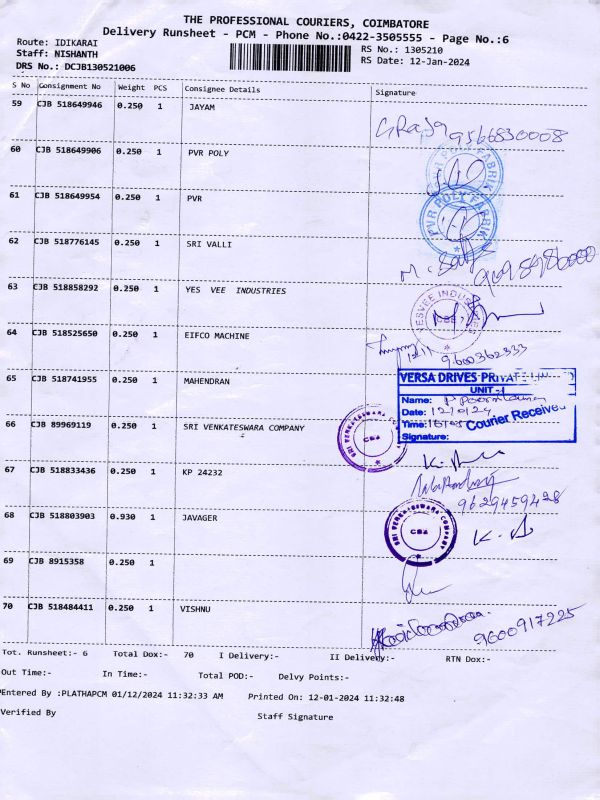 THE PROFESSIONAL COURIERS, COIMBATORE
Delivery Runsheet - PCM - Phone No.:0422-3505555 - Page No.:6
Route: IDIKARAI
Staff: NISHANTH
DRS No.: DCJB130521006
RS No.: 1305210
RS Date: 12-Jan-2024
S No Consignment No Weight PCS Consignee Details Signature
59 CJB 518649946 0.250 1 JAYAM
9566830008
60 CJB 518649906 0.250 1 PVR POLY
PVR POLY FABRIK
61 CJB 518649954 0.250 1 PVR
PVR POLY FABRIK
62 CJB 518776145 0.250 1 SRI VALLI
63 CJB 518858292 0.250 1 YES VEE INDUSTRIES
YESVEE INDUSTRIES
CBE
64 CJB 518525650 0.250 1 EIFCO MACHINE
9600362333
65 CJB 518741955 0.250 1 MAHENDRAN
VERSA DRIVES PRIVATE
UNIT - I
Name:
Date: 12/01/24
Time:
Courier Received
Signature:
66 CJB 89969119 0.250 1 SRI VENKATESWARA COMPANY
SRI VENKATESWARA COMPANY
67 CJB 518833436 0.250 1 KP 24232
9629459428
68 CJB 518803903 0.930 1 JAVAGER
SRI VENKATESWARA COMPANY
69 CJB 8915358 0.250 1
70 CJB 518484411 0.250 1 VISHNU
9600917225
Tot. Runsheet:- 6 Total Dox:- 70 I Delivery:- II Delivery:- RTN Dox:-
Out Time:- In Time:- Total POD:- Delvy Points:-
Entered By :PLATHAPCM 01/12/2024 11:32:33 AM Printed On: 12-01-2024 11:32:48
Verified By Staff Signature